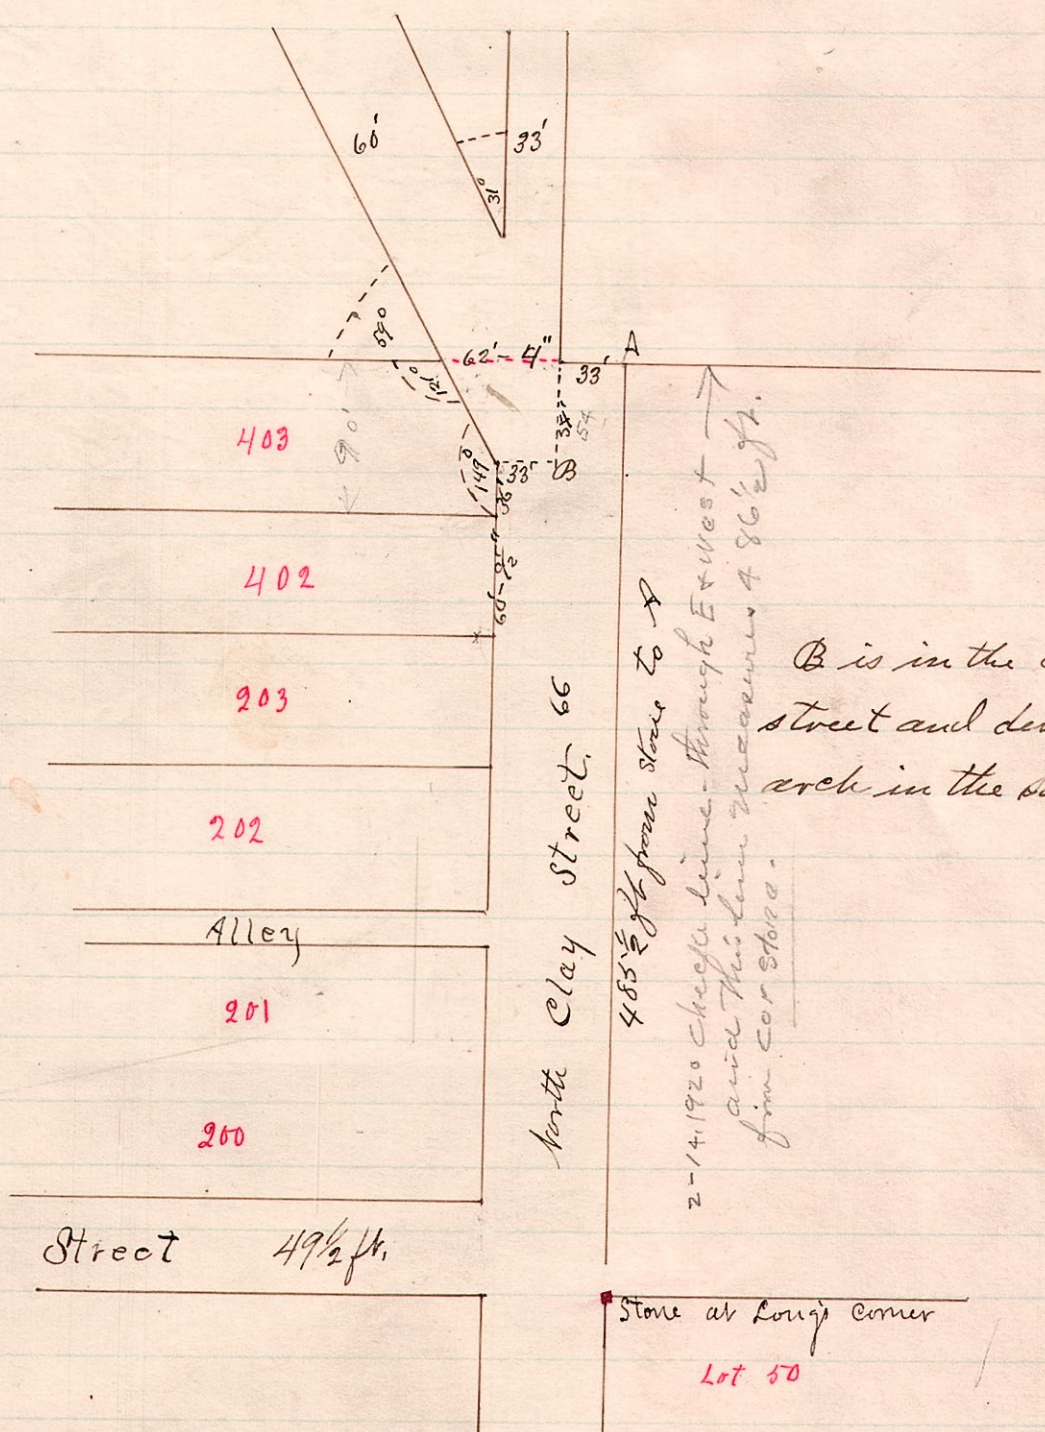 60'
33'
31°
59°
62'- 4"
A
33'
121°
403
90'
54
149°
33'
B
36'
402
60'-9½"
203
202
Alley
201
200
North Clay Street. 66
485½ ft from stone to A
2-14-1920 Check line through E & West
and this line measures 486½ ft.
from cor stone.
B is in the
street and
arch in the
Street 49½ ft.
Stone at Long's Corner
Lot 50